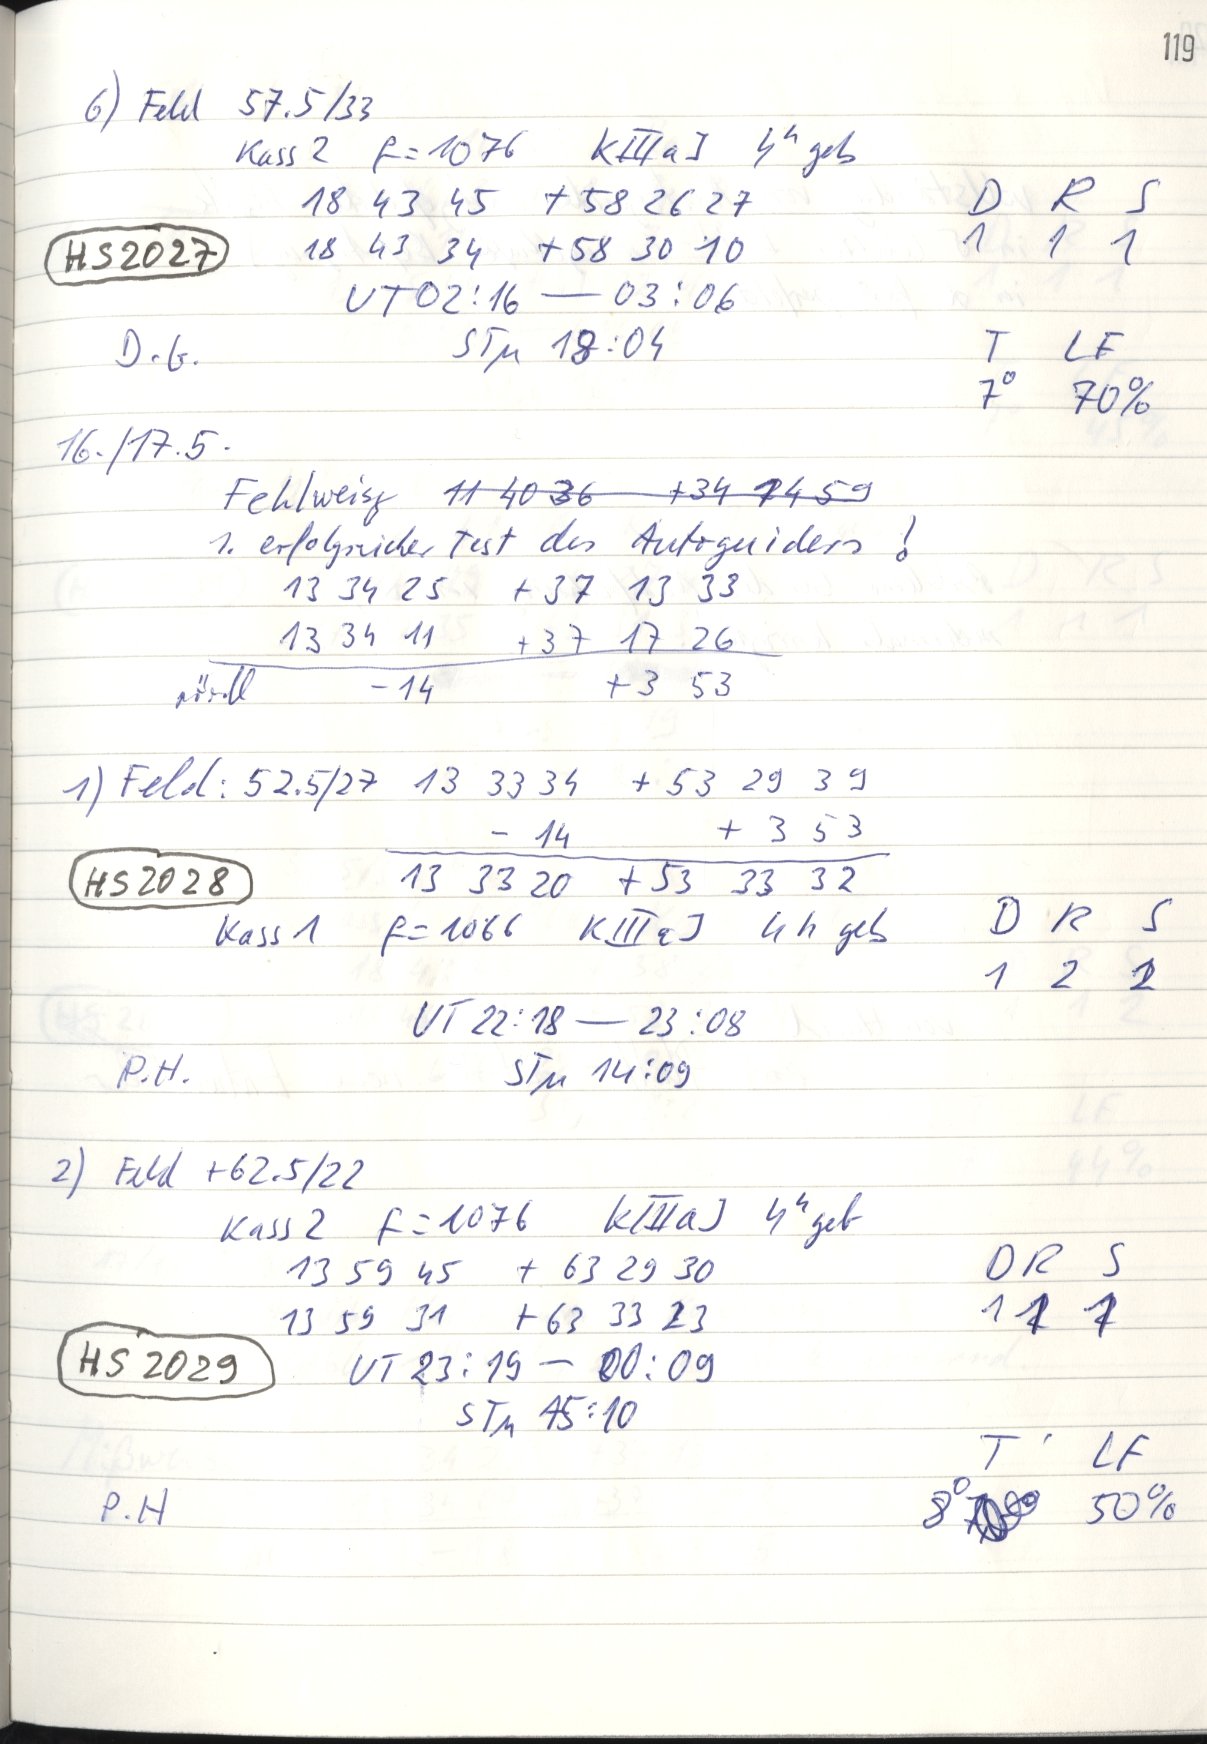 119
6) Feld 57.5/33
Kass 2 f=1076 KIIIaJ 4h geb
18 43 45 +58 26 27 D R S
HS2027 18 43 34 +58 30 10 1 1 1
UT 02:16 — 03:06
D.G. STM 18:04 T LF
7° 70%
16./17.5.
11 40 36 +34 14 59
1. erfolgreicher Test des Autoguiders!
13 34 25 +37 13 33
13 34 11 +37 17 26
nördl -14 +3 53
1) Feld: 52.5/27 13 33 34 +53 29 39
-14 +3 53
HS2028 13 33 20 +53 33 32
Kass 1 f=1066 KIIIaJ 4h geb D R S
1 2
UT 22:18 — 23:08
P.H. STM 14:09
2) Feld +62.5/22
Kass 2 f=1076 KIIIaJ 4h geb
13 59 45 +63 29 30 D R S
13 59 31 +63 33 23 1 1 1
HS 2029 UT 23:19 — 00:09
STM 15:10
T LF
P.H 8° 50%